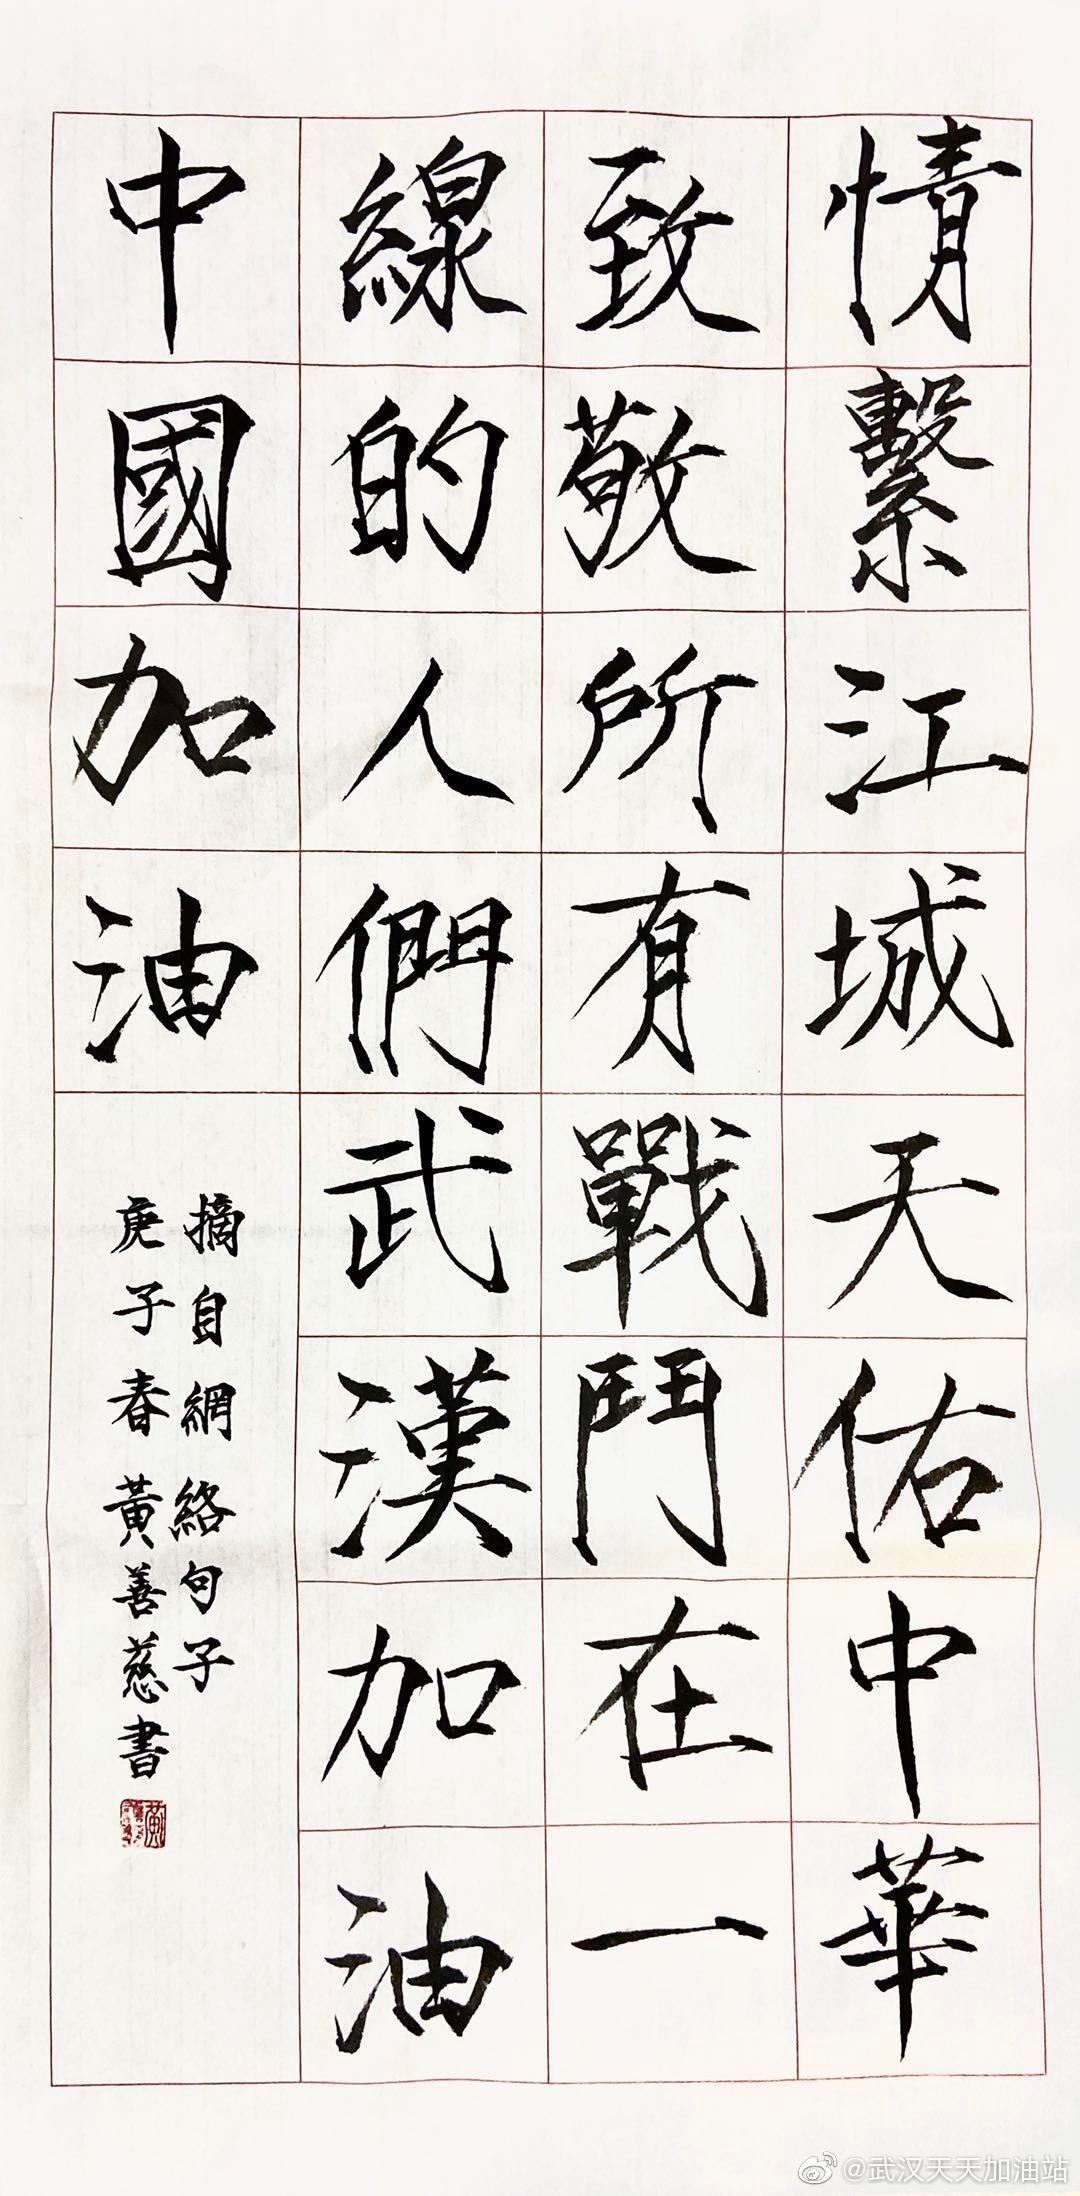 情繫江城天佑中華
致敬所有戰鬥在一
線的人們武漢加油
中國加油
摘自網絡句子
庚子春黃善慈書
@武汉天天加油站